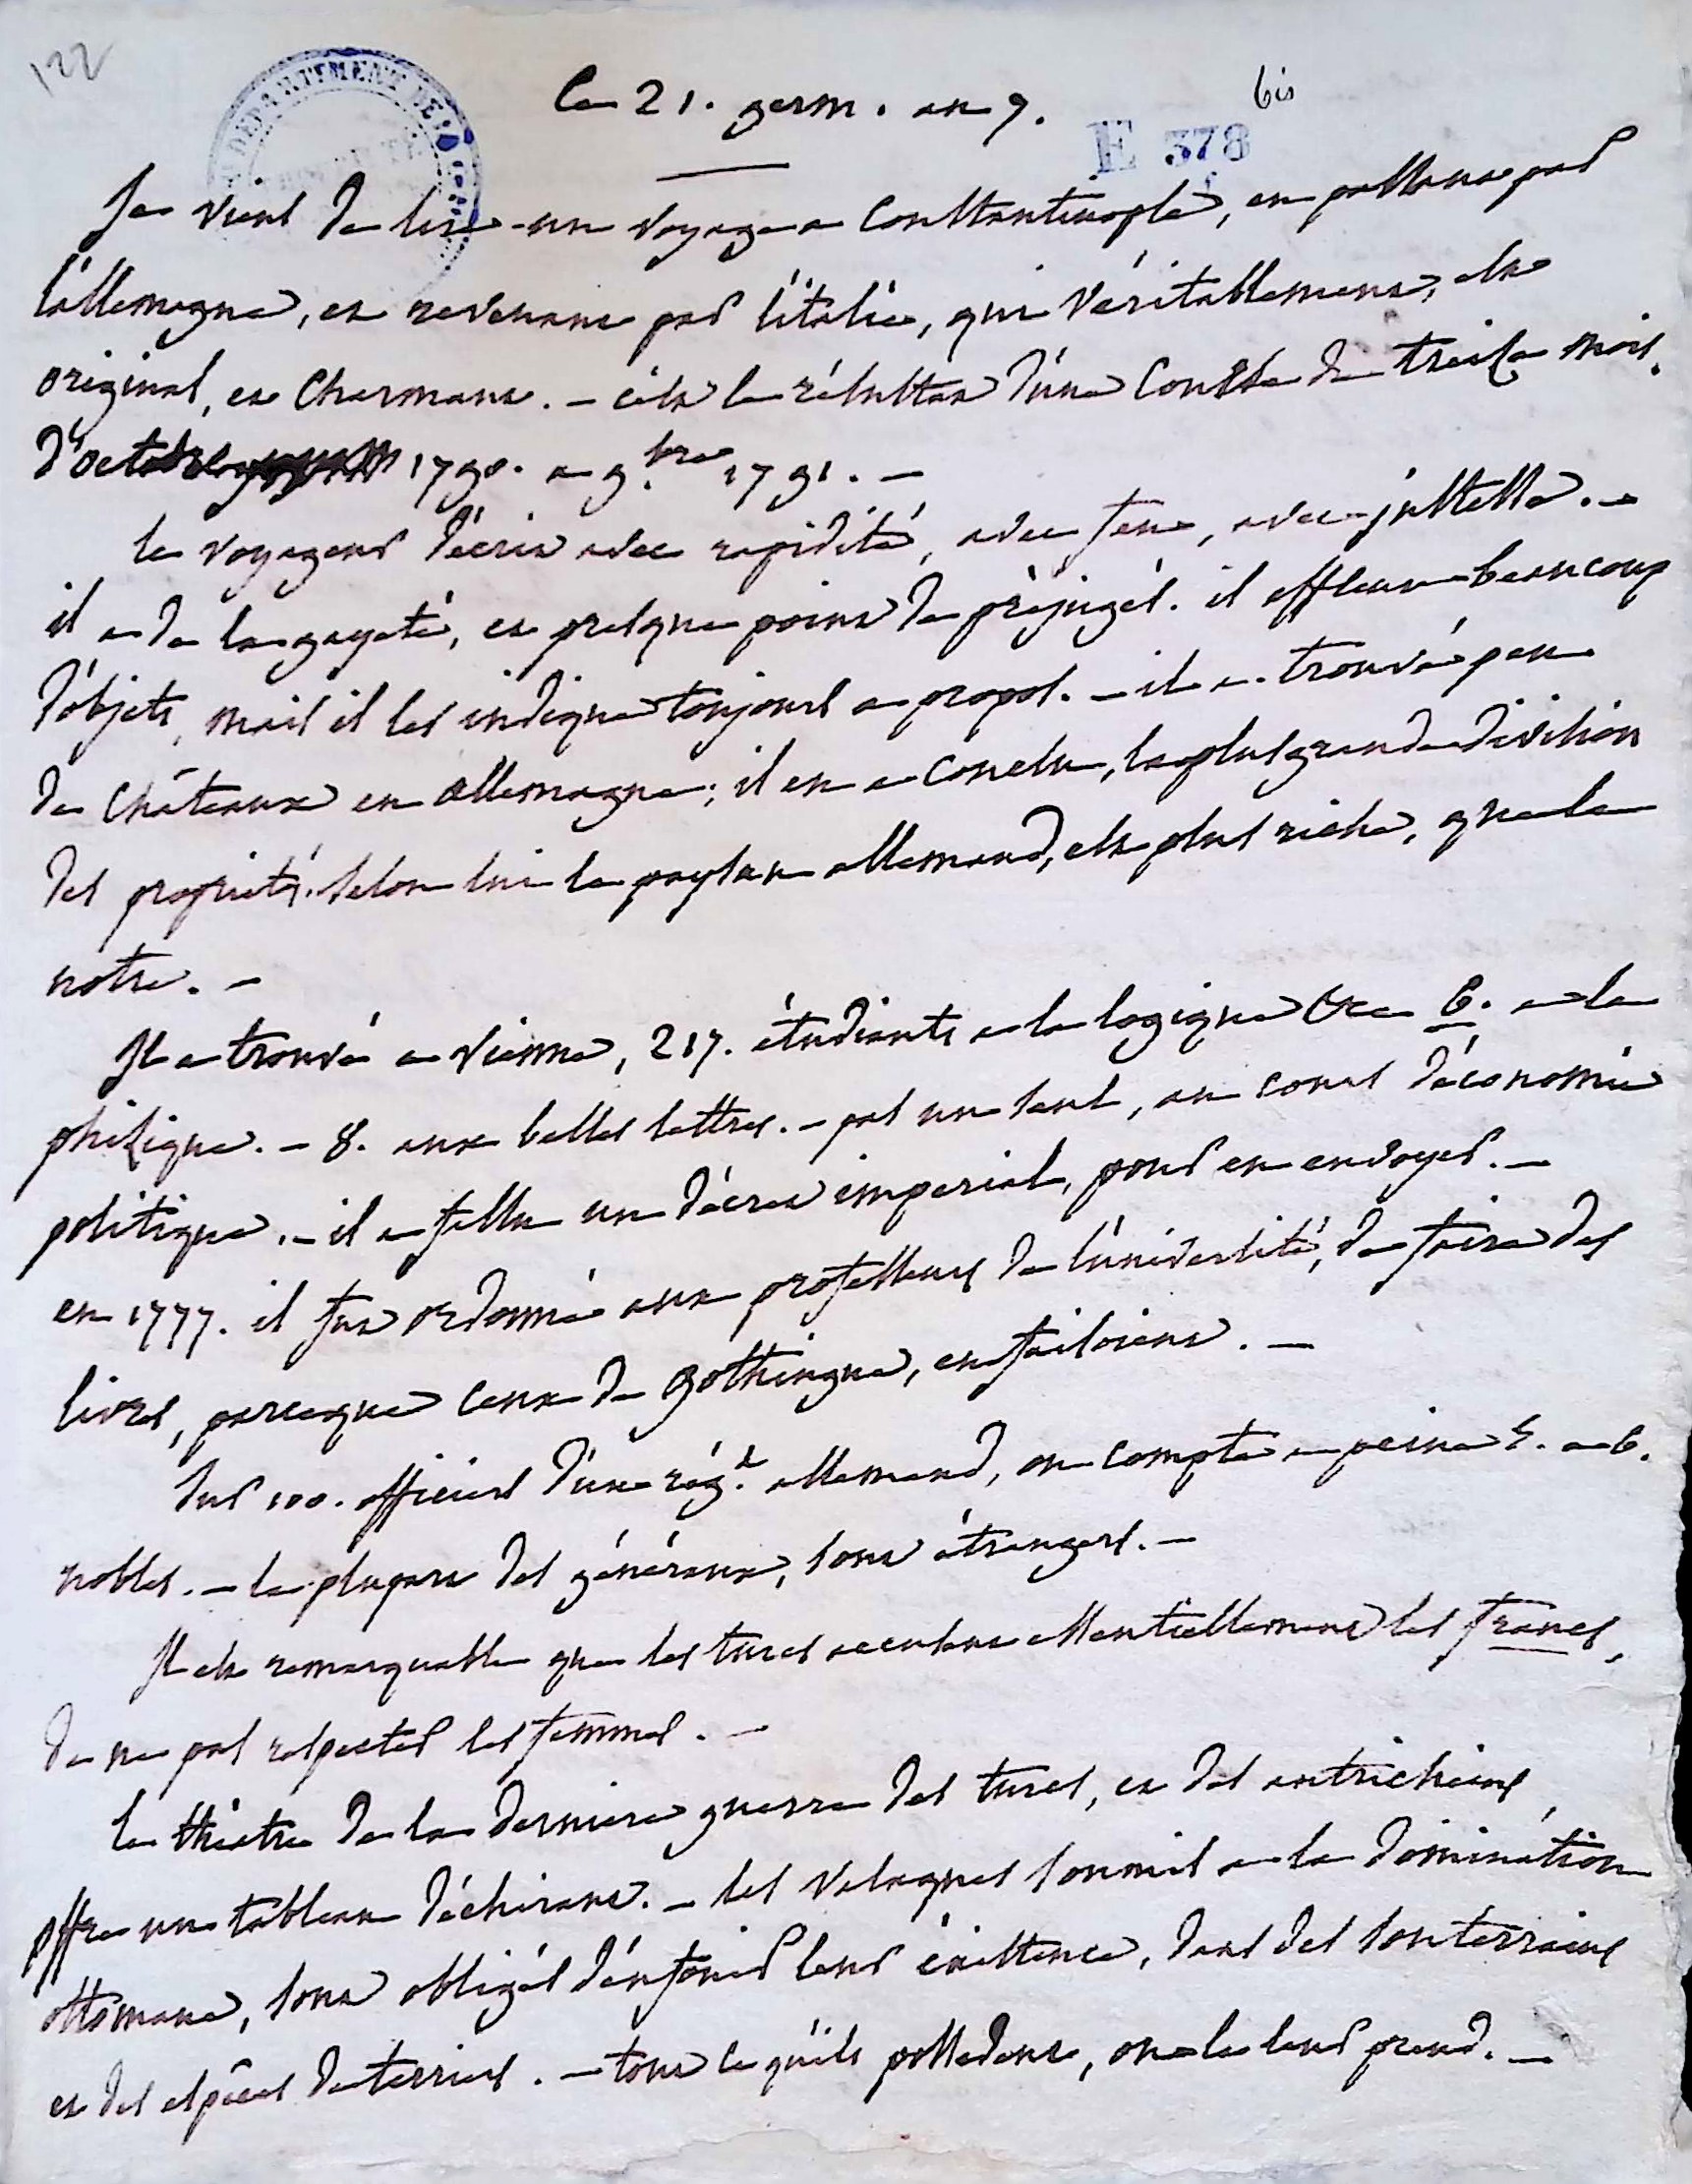 122
DEPARTEMENT DE
Le 21. germ. an 9.
bis
E 378
Je viens de lire un voyage a Constantinople, en passant par
l'allemagne, et revenant par l'italie, qui véritablement, est
original, et charmant. - c'est le résultat d'une Course de treize mois.
d'octobre 1790. a 9.bre 1791. -
le voyageur décrit avec rapidité, avec feu, avec justesse. -
il a de la gayeté, et presque point de préjugés. il effleure beaucoup
d'objets, mais il les indique toujours a propos. - il a trouvé peu
de châteaux en allemagne; il en a conclu, la plus grande division
des propriétés. selon lui le paysan allemand, est plus riche, que le
notre. -
Il a trouvé a vienne, 217. étudiants a la logique et 6. a la
phisique. - 8. aux belles lettres. - pas un seul, au cours d'économie
politique. - il a fallu un décret imperial, pour en envoyer. -
en 1777. il fut ordonné aux professeurs de l'université, de faire des
livres, parceque ceux de Gottingue, en faisoient. -
sur 100. officiers d'un rég.t allemand, on compte a peine 5. a 6.
nobles. - la plupart des généraux, sont étrangers. -
Il est remarquable que les turcs accusent essentiellement les francs,
de ne pas respecter les femmes. -
le théatre de la derniere guerre des turcs, et des autrichiens,
offre un tableau déchirant. - les valaques soumis a la domination
ottomane, sont obligés d'enfouir leur éxistence, dans des souterrains
et des espèces de terriers. - tout ce qu'ils possedent, on le leur prend. -